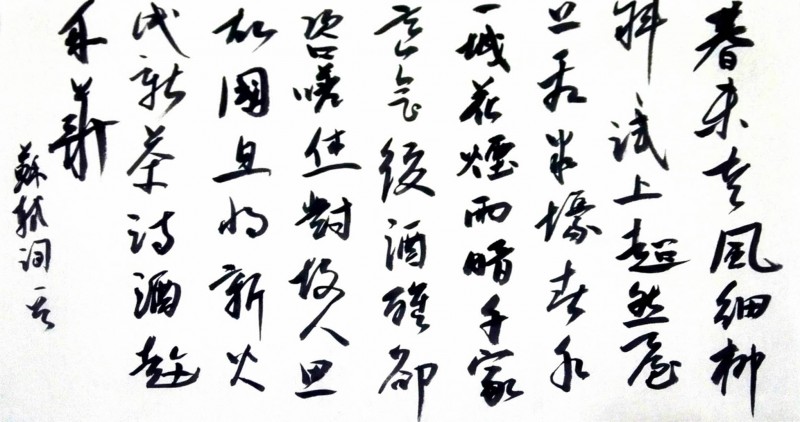 春未老風細柳
斜試上超然臺
上看半壕春水
一城花煙雨暗千家
寒食後酒醒卻
咨嗟休對故人思
故國且將新火
試新茶詩酒趁
年華
蘇軾詞一首